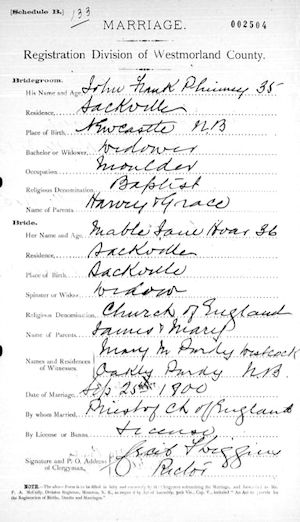 [Schedule B.] 133
002504
MARRIAGE.
Registration Division of Westmorland County.
Bridegroom.
His Name and Age, John Frank Phinney 35
Residence, Sackville
Place of Birth, Newcastle NB
Bachelor or Widower, Widower
Occupation, Moulder
Religious Denomination, Baptist
Name of Parents, Harvey & Grace
Bride.
Her Name and Age, Mable Jane Hoar 36
Residence, Sackville
Place of Birth, Sackville
Spinster or Widow, Widow
Religious Denomination, Church of England
Name of Parents, James & Mary
Names and Residences of Witnesses. Mary M Purdy Westcock
Oakly Purdy N.B.
Date of Marriage, Sep 25th 1900
By whom Married, Priest of Ch of England
By License or Banns, License
Signature and P. O. Address of Clergyman, Wiggins
Rector
NOTE.—The above Form is to be filled in fully and correctly by the Clergyman solemnizing the Marriage, and forwarded to Mr.